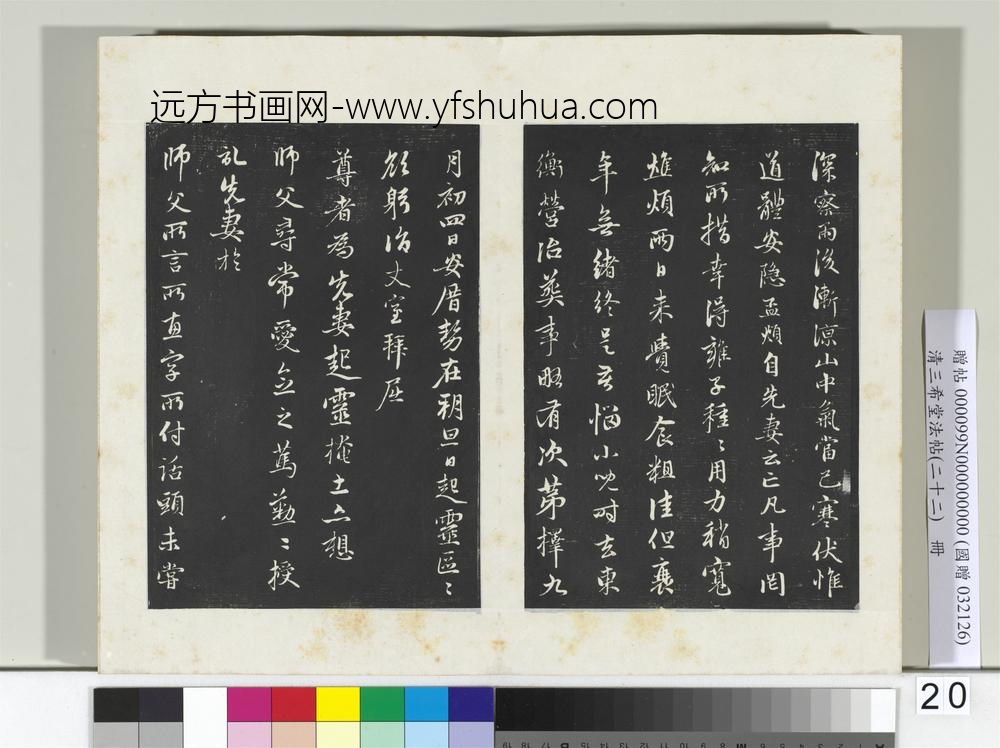 远方书画网-www.yfshuhua.com
深察雨后渐凉山中氣當已寒伏惟
道體安隐孟頫自先妻云亡凡事罔
知所措幸得雍子種〻用力稍寬
煩兩日来覺眠食粗佳但衰
年無緒終是苦惱小兒時去東
衡營治葬事略有次第擇九
月初四日安厝勢在朔旦日起靈區〻
欲躬詣丈室拜屈
尊者為先妻起靈掩土亦想
師父尋常愛念之篤懃〻授
礼先妻於
師父所言所直字所付話頭未嘗
贈帖 000099N000000000 (國贈 032126)
清三希堂法帖(二十二) 冊
20